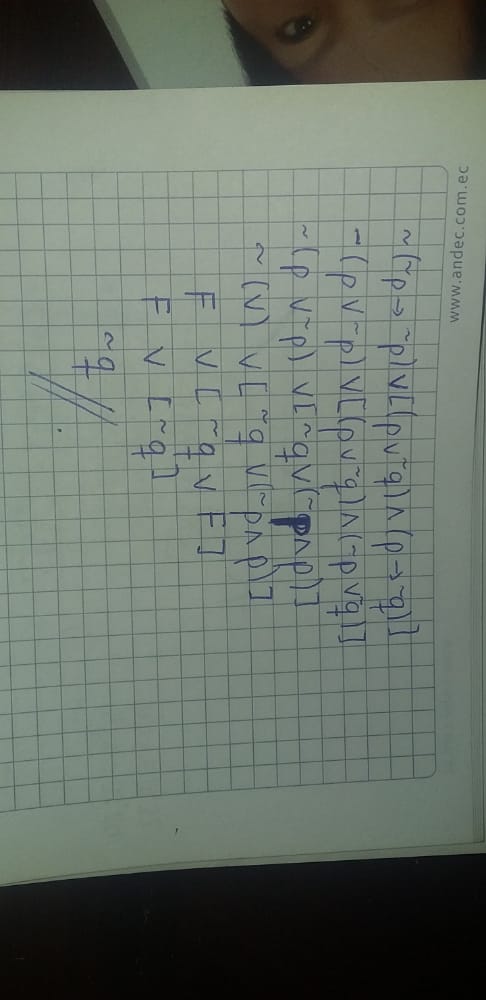 www.andec.com.ec
~(~p → ~p) ∨ [(p ∨ ~q) ∧ (p → ~q)]
~(p ∨ ~p) ∨ [(p ∨ ~q) ∧ (~p ∨ ~q)]
~(p ∨ ~p) ∨ [~q ∨ (~p ∧ p)]
~(V) ∨ [~q ∨ (~p ∧ p)]
F ∨ [~q ∨ F]
F ∨ [~q]
~q //.